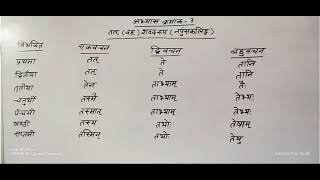 अभ्यास क्रमांक - 3
तत् (वह) शब्दरूप (नपुंसकलिङ्ग)
विभक्ति एकवचन द्विवचन बहुवचन
प्रथमा तत् ते तानि
द्वितीया तत् ते तानि
तृतीया तेन ताभ्याम् तैः
चतुर्थी तस्मै ताभ्याम् तेभ्यः
पंचमी तस्मात् ताभ्याम् तेभ्यः
षष्ठी तस्य तयोः तेषाम्
सप्तमी तस्मिन् तयोः तेषु